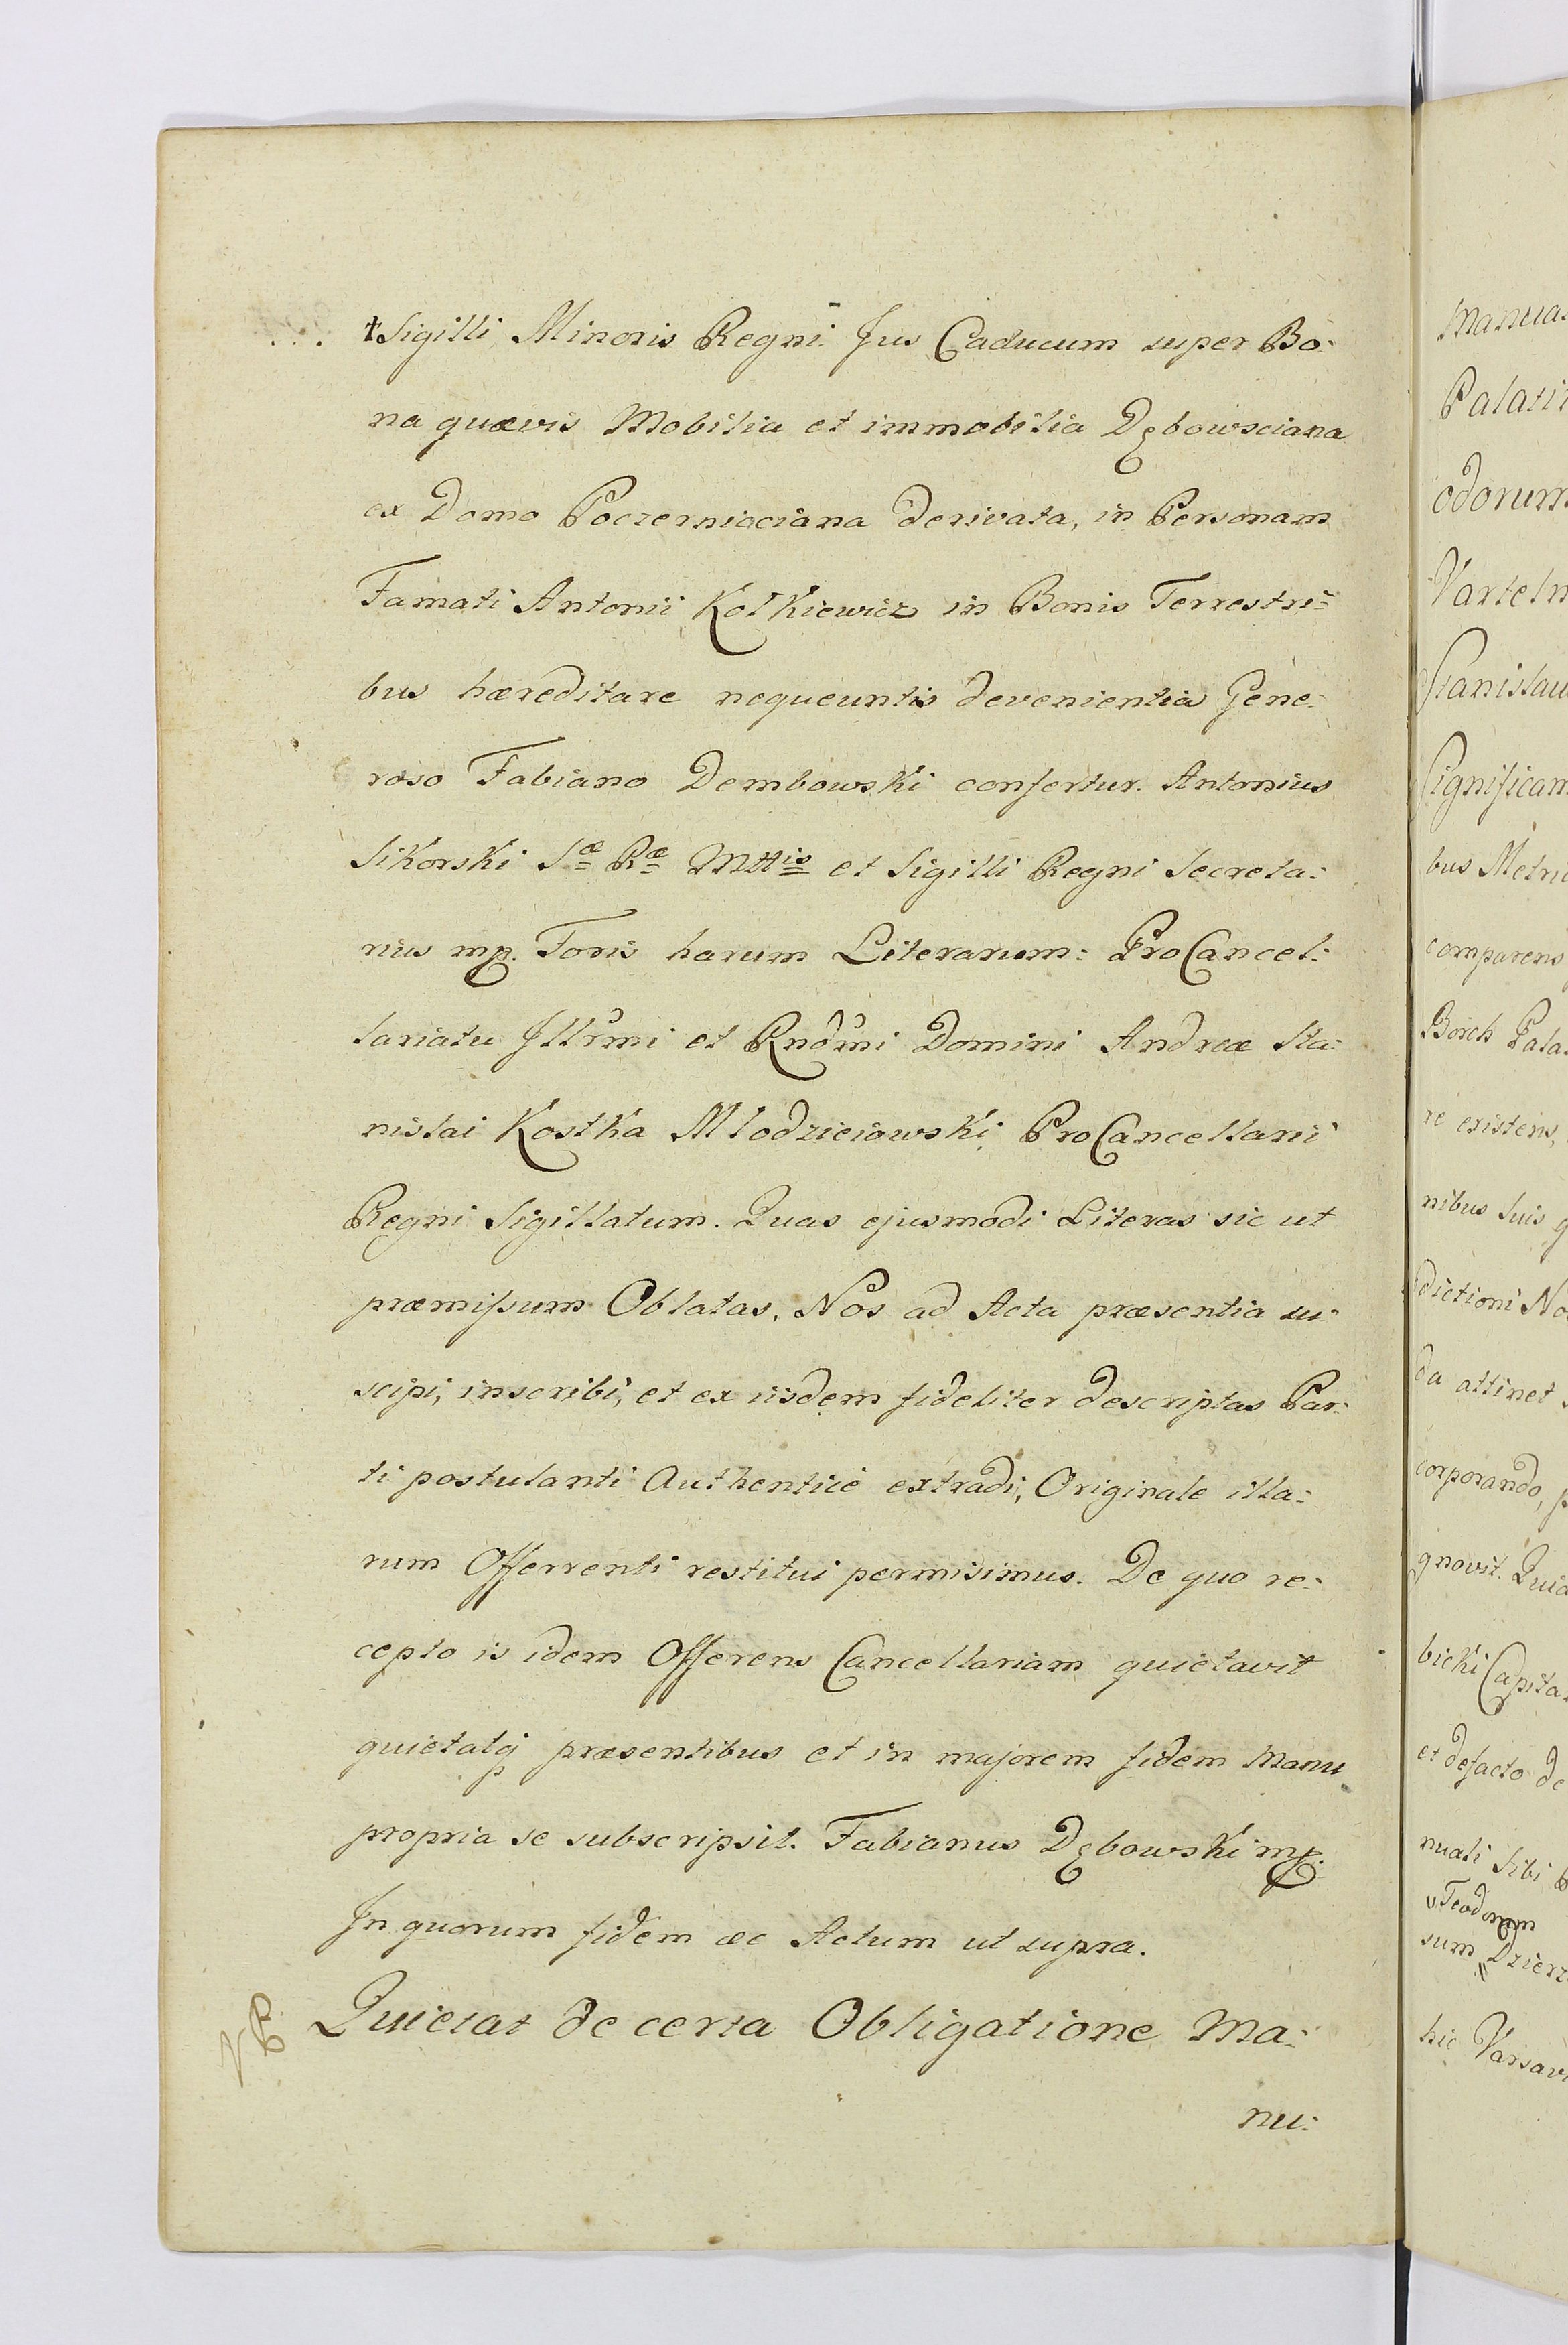 †Sigilli Minoris Regni Jus Caducum super Bo:
na quævis Mobilia et immobilia Dębowsciana
ex Domo Poczerniociana derivata, in Personam
Famati Antonii Kotkiewicz in Bonis Terrestri:
bus hæreditare nequeuntis devenientia Gene:
roso Fabiano Dembowski confertur. Antonius
Sikorski Sæ Ræ Mttis et Sigilli Regni Secreta:
rius mp. Foris harum Literarum: ProCancel:
lariatu Jllrmi et Rndmi Domini Andreæ Sta:
nislai Kostka Mlodzieiowski ProCancellarii
Regni Sigillatum. Quas ejusmodi Literas sic ut
præmissum Oblatas, Nos ad Acta præsentia su:
scipi, inscribi, et ex iisdem fideliter descriptas Par:
ti postulanti Authenticè extradi, Originale illa:
rum Offerrenti restitui permisimus. De quo re:
cepto is idem Offerens Cancellariam quietavit
quietatq præsentibus et in majorem fidem Manu
propria se subscripsit. Fabianus Dębowski mp.
Jn quorum fidem &c Actum ut supra.
Quietat de certa Obligatione Ma:
nu:
Palati
odorum
Varteln
Stanislau
Significam
bus Metri
comparens
Borch Pala
re existens,
nibus Suis q
dictioni No
da attinet
corporando, p
gnovit. Quia
bicki Capita
et defacto de
nuali Sibi
"Teodorum
sum Dzierz
hic Varsavi